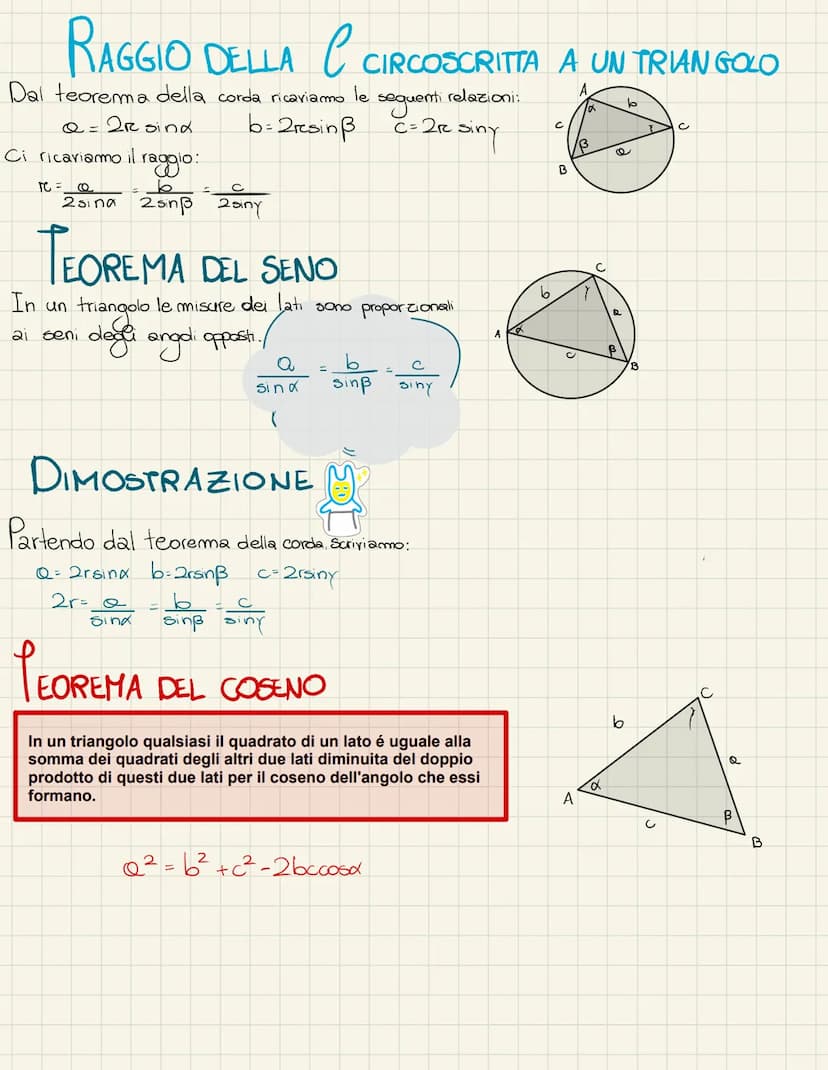 RAGGIO DELLA C CIRCOSCRITTA A UN TRIANGOLO
Dal teorema della corda ricaviamo le seguenti relazioni:
a = 2r sinα b=2rsinβ c=2r sinγ
Ci ricaviamo il raggio:
r = a/2sinα = b/2sinβ = c/2sinγ
A
b
α
c
γ
C
β
a
B
TEOREMA DEL SENO
In un triangolo le misure dei lati sono proporzionali
ai seni degli angoli opposti.
a/sinα = b/sinβ = c/sinγ
C
b
γ
a
A
α
c
β
B
DIMOSTRAZIONE
Partendo dal teorema della corda scriviamo:
a= 2rsinα b=2rsinβ c=2rsinγ
2r= a/sinα = b/sinβ = c/sinγ
TEOREMA DEL COSENO
In un triangolo qualsiasi il quadrato di un lato é uguale alla
somma dei quadrati degli altri due lati diminuita del doppio
prodotto di questi due lati per il coseno dell'angolo che essi
formano.
C
b
γ
a
α
A
β
c
B
a² = b² + c² - 2bccosα